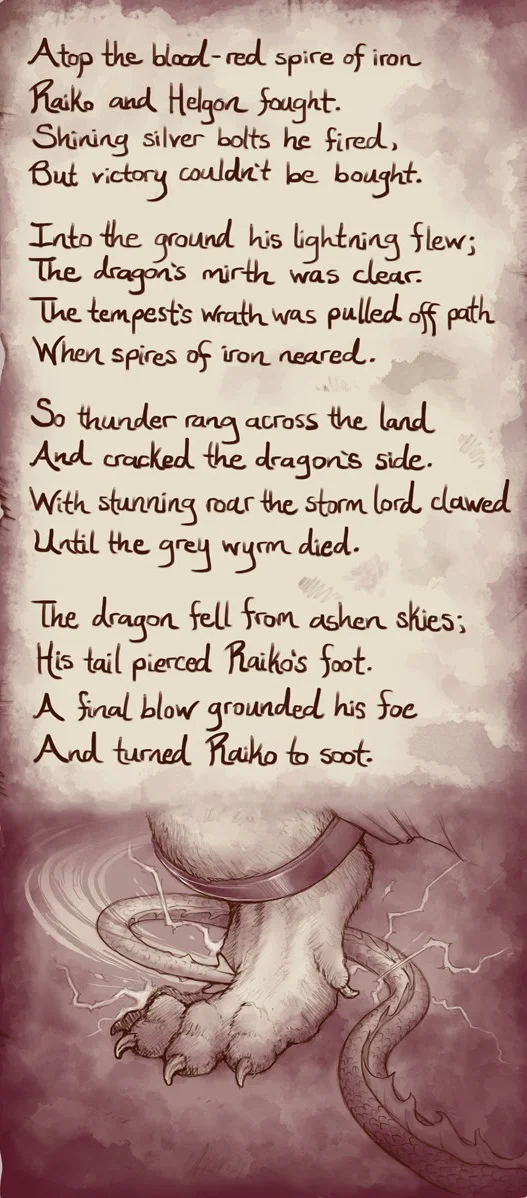 Atop the blood-red spire of iron
Raiko and Helgon fought.
Shining silver bolts he fired,
But victory couldn't be bought.
Into the ground his lightning flew;
The dragon's mirth was clear.
The tempest's wrath was pulled off path
When spires of iron neared.
So thunder rang across the land
And cracked the dragon's side.
With stunning roar the storm lord clawed
Until the grey wyrm died.
The dragon fell from ashen skies;
His tail pierced Raiko's foot.
A final blow grounded his foe
And turned Raiko to soot.